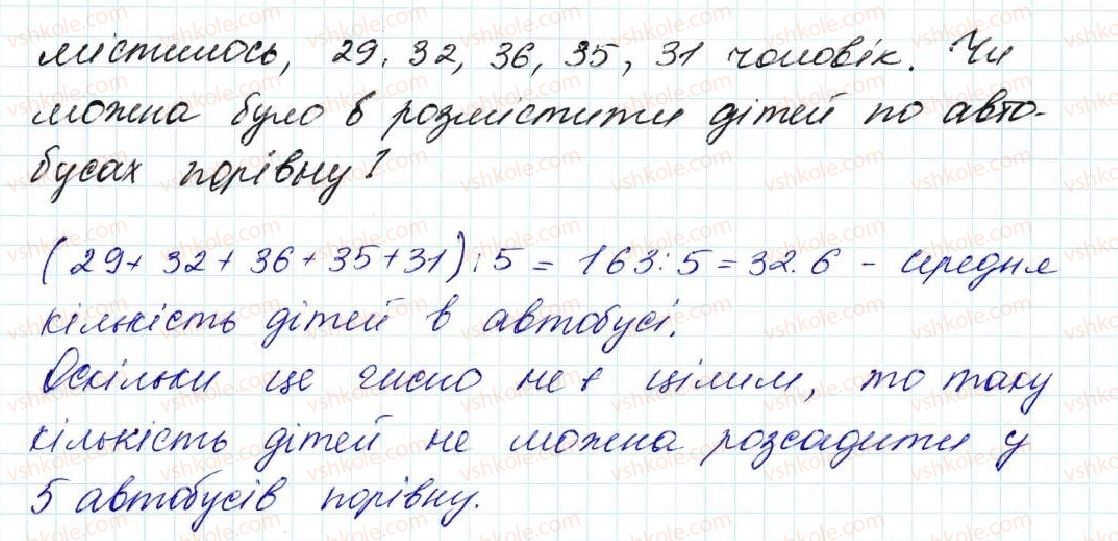 містилось, 29, 32, 36, 35, 31 чоловік. Чи
можна було б розмістити дітей по авто-
бусах порівну?
(29+ 32+ 36+35+31):5 = 163:5=32.6 - середня
кількість дітей в автобусі.
Оскільки це число не є цілим, то таку
кількість дітей не можна розсадити у
5 автобусів порівну.